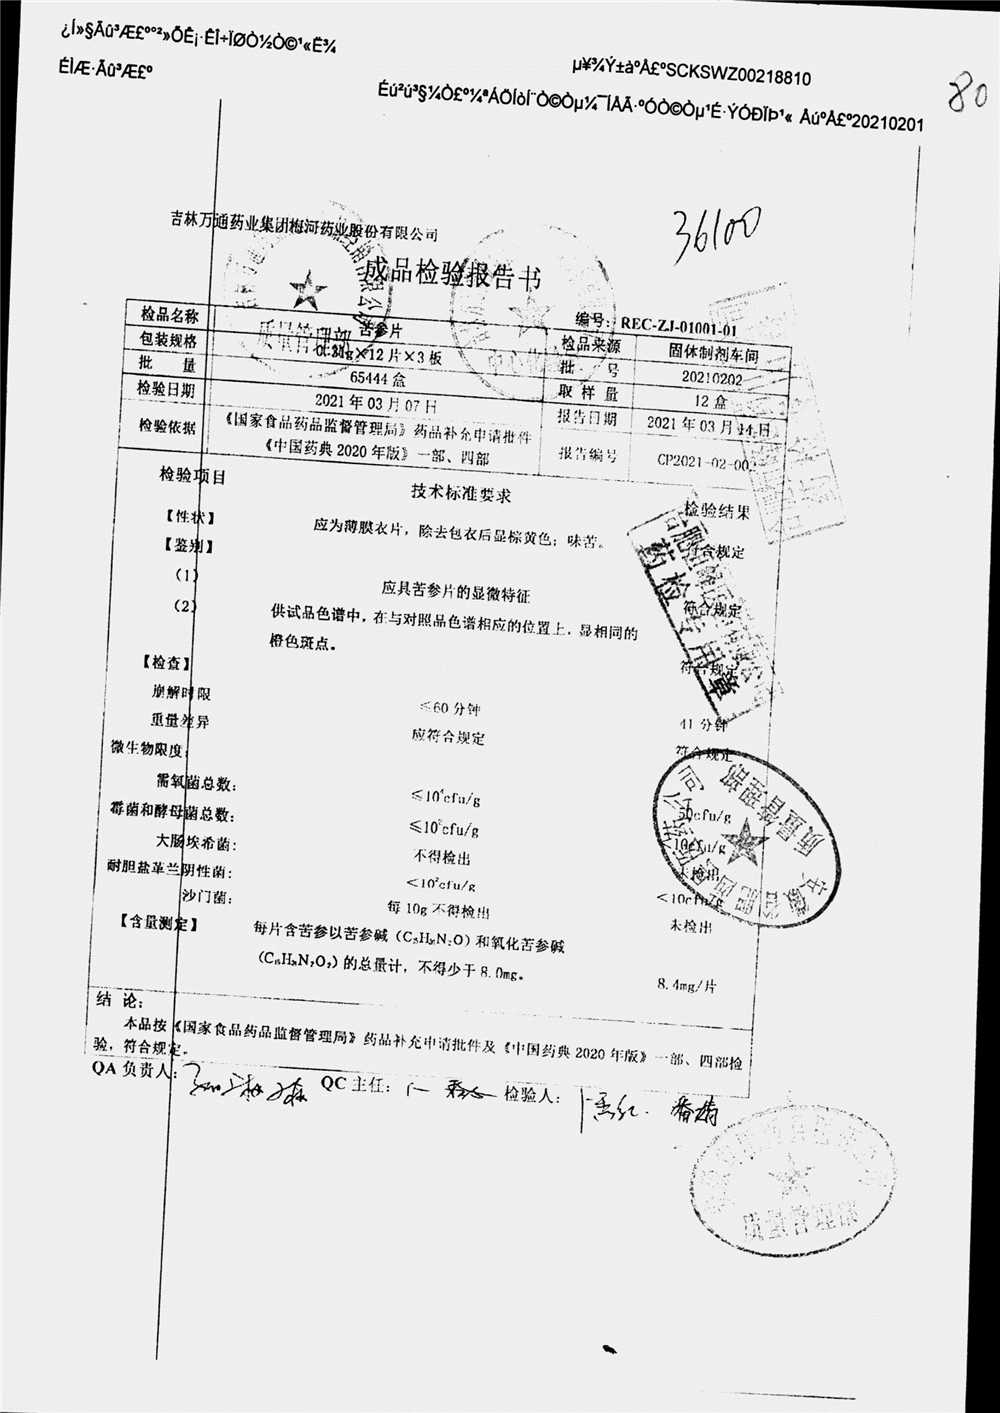 ¿Í»§Ãû³Æ£º°²»ÕÊ¡·ÊÎ÷ÏØÒ½Ò©¹«Ë¾
µ¥¾Ý±àºÅ£ºSCKSWZ00218810
80
ÉÌÆ·Ãû³Æ£º
Éú²ú³§¼Ò£º¼ªÁÖÍòÍ¨Ò©Òµ¼¯ÍÅÃ·ºÓÒ©Òµ¹É·ÝÓÐÏÞ¹« ÅúºÅ£º20210201
36100
吉林万通药业集团梅河药业股份有限公司
成品检验报告书
编号: REC-ZJ-01001-01
检品名称 苦参片 检品来源 固体制剂车间
包装规格 ×12片×3板 批 号 20210202
批 量 65444盒 取样量 12盒
检验日期 2021年03月07日 报告日期 2021年03月14日
检验依据 《国家食品药品监督管理局》药品补充申请批件 《中国药典2020年版》一部、四部 报告编号 CP2021-02-002
检验项目 技术标准要求 检验结果
【性状】 应为薄膜衣片，除去包衣后显棕黄色；味苦。 符合规定
【鉴别】
(1) 应具苦参片的显微特征 符合规定
(2) 供试品色谱中，在与对照品色谱相应的位置上，显相同的
橙色斑点。 符合规定
【检查】
崩解时限 ≤60分钟 41分钟
重量差异 应符合规定 符合规定
微生物限度:
需氧菌总数: ≤10⁴cfu/g 50cfu/g
霉菌和酵母菌总数: ≤10²cfu/g 10cfu/g
大肠埃希菌: 不得检出 未检出
耐胆盐革兰阴性菌: <10²cfu/g <10cfu/g
沙门菌: 每10g不得检出 未检出
【含量测定】 每片含苦参以苦参碱 和氧化苦参碱
的总量计，不得少于8.0mg。 8.4mg/片
结 论:
本品按《国家食品药品监督管理局》药品补充申请批件及《中国药典2020年版》一部、四部检
验，符合规定。
QA负责人: QC主任: 检验人:
质量管理部
药检专用章
质量管理部